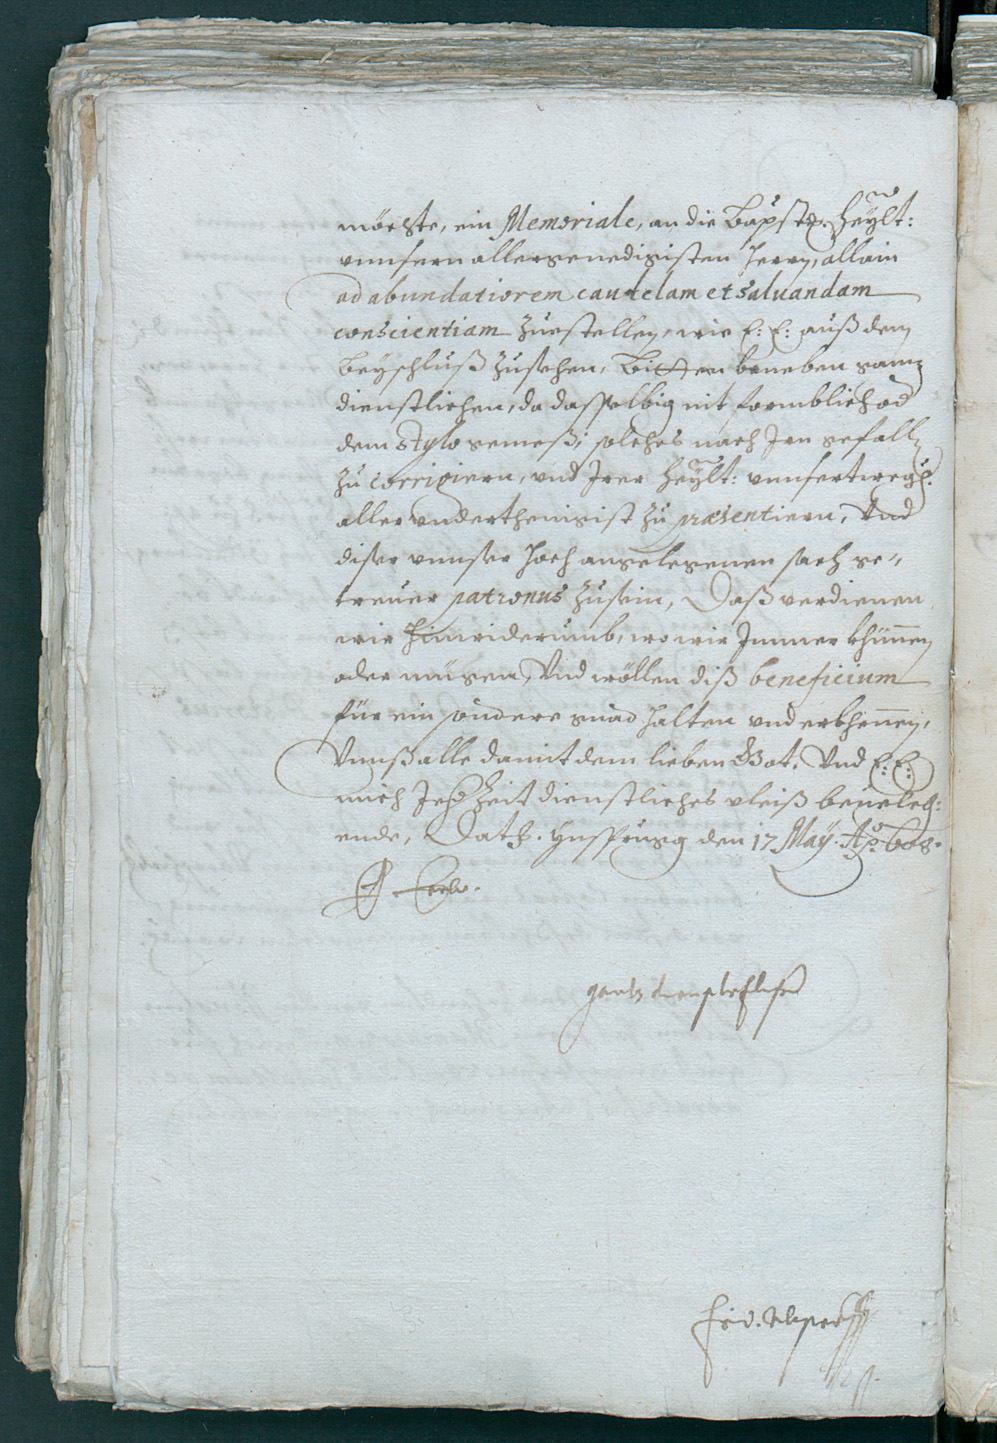 möchte, ein Memoriale, an die Bapstl. Heylt:
unnsern allergenedigisten Herrn, allain
ad abundatiorem cautelam et salvandam
conscientiam zuestellen, wie E: E: auß dem
Beyschluß zusehen, Bitten beneben gannz
dienstlichen, da dasselbig nit formblich od
dem stylo gemeß, solches nach Irn gefalln
zu corrigiern, und Irer Heylt: unnsertwegen
aller underthenigist zu præsentiern, Und
diser unnser hoch angelegenen sach ge-
treuer patronus zusein, Daß verdienen
wir hinwiderumb, wo wir Immer khünnen
oder mügen, Und wöllen diß beneficium
für ein sondere gnad halten und erkhennen,
Unnß alle damit dem lieben Got, Und E: E:
mich Jeder Zeit dienstliches vleiß bevelch:
ende, Dat. Ynsprugg den 17 May Ao. 608.
gantz